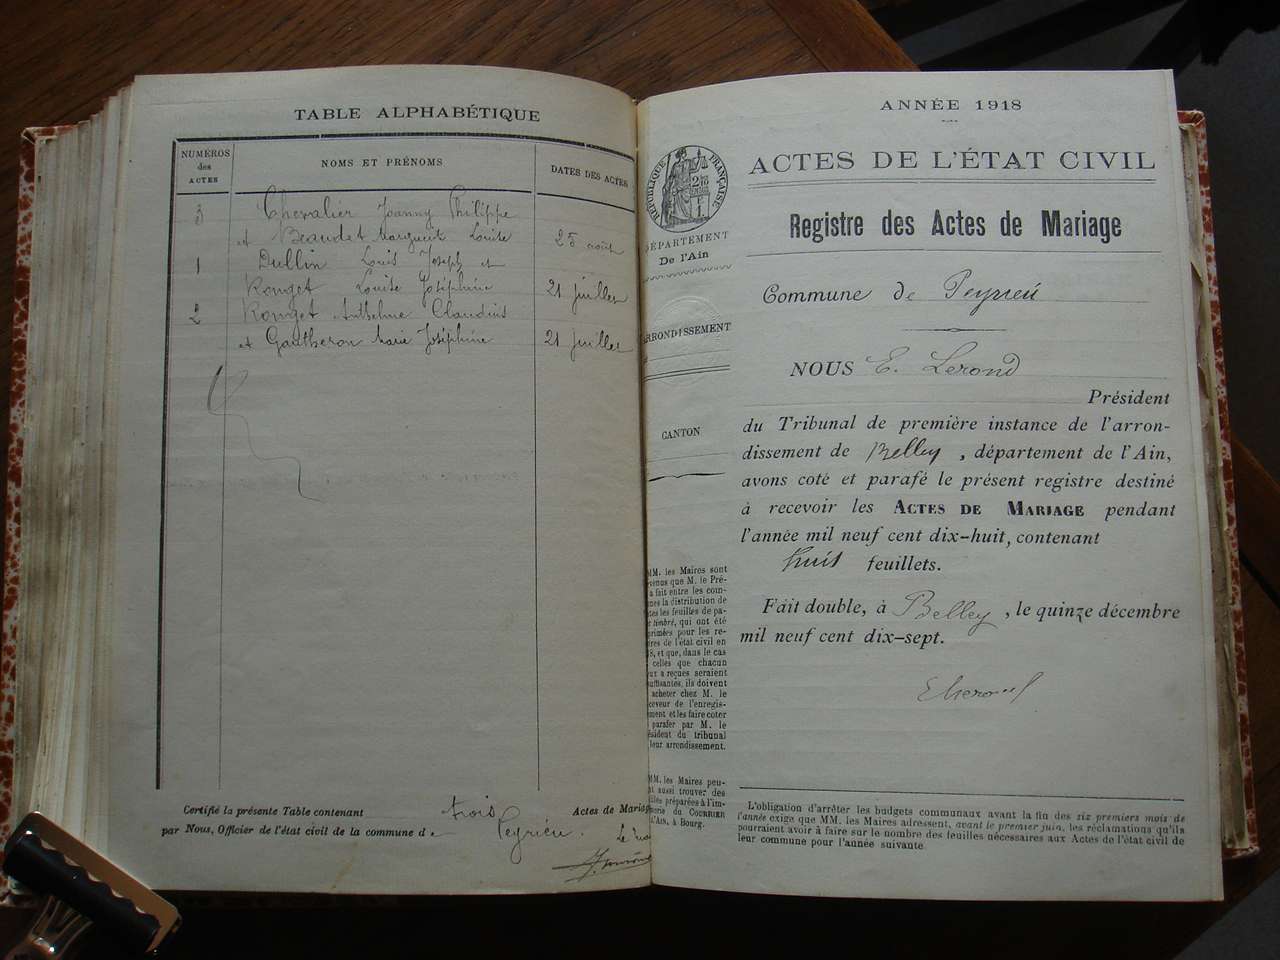 TABLE ALPHABÉTIQUE
NUMÉROS des ACTES
NOMS ET PRÉNOMS
DATES DES ACTES
3 Chevalier Joanny Philippe
et Beaudet Marguerite Louise 25 août
1 Dullin Louis Joseph et
Rouget Louise Joséphine 21 juillet
2 Rouget Anthelme Claudius
et Gautheron Marie Joséphine 21 juillet
Certifié la présente Table contenant trois Actes de Mariage
par Nous, Officier de l'état civil de la commune de Peyrieu. Le
ANNÉE 1918
ACTES DE L'ÉTAT CIVIL
Registre des Actes de Mariage
RÉPUBLIQUE FRANÇAISE
DÉPARTEMENT
De l'Ain
ARRONDISSEMENT
CANTON
MM. les Maires sont
venus que M. le Pré-
a fait entre les com-
nes la distribution de
tes les feuilles de pa-
r timbré, qui ont été
primées pour les re-
res de l'état civil en
18, et que, dans le cas
celles que chacun
ux a reçues seraient
suffisantes, ils doivent
acheter chez M. le
ceveur de l'enregis-
ement et les faire coter
parafer par M. le
résident du tribunal
leur arrondissement.
MM. les Maires peu-
nt aussi trouver des
bles préparées à l'im-
merie du COURRIER
d'Ain, à Bourg.
Commune de Peyrieu
NOUS E. Lerond
Président
du Tribunal de première instance de l'arron-
dissement de Belley, département de l'Ain,
avons coté et parafé le présent registre destiné
à recevoir les ACTES DE MARIAGE pendant
l'année mil neuf cent dix-huit, contenant
huit feuillets.
Fait double, à Belley, le quinze décembre
mil neuf cent dix-sept.
L'obligation d'arrêter les budgets communaux avant la fin des six premiers mois de
l'année exige que MM. les Maires adressent, avant le premier juin, les réclamations qu'ils
pourraient avoir à faire sur le nombre des feuilles nécessaires aux Actes de l'état civil de
leur commune pour l'année suivante.